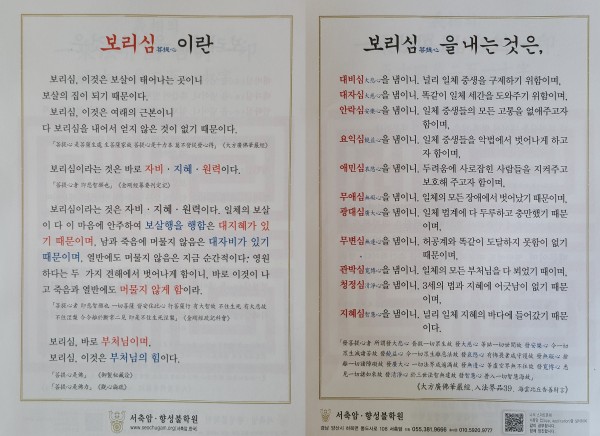 보리심菩提心이란
보리심, 이것은 보살이 태어나는 곳이니
보살의 집이 되기 때문이다.
보리심, 이것은 여래의 근본이니
다 보리심을 내어서 얻지 않은 것이 없기 때문이다.
보리심이라는 것은 바로 자비·지혜·원력이다.
보리심이라는 것은 자비·지혜·원력이다. 일체의 보살
이 다 이 마음에 안주하여 보살행을 행함은 대지혜가 있
기 때문이며, 남과 죽음에 머물지 않음은 대자비가 있기
때문이며, 열반에도 머물지않음은 지금 순간적이다·영원
하다는 두 가지 견해에서 벗어나게 함이니, 바로 이것이 나
고 죽음과 열반에도 머물지 않게 함이라.
보리심, 바로 부처님이며,
보리심, 이것은 부처님의 힘이다.
「菩提心是佛」 《御製秘藏詮》
「菩提心是佛力」 《觀心論疏》
서축암·향성불학원
보리심菩提心을 내는 것은,
대비심大悲心을 냄이니, 널리 일체 중생을 구제하기 위함이며,
대자심大慈心을 냄이니, 똑같이 일체 세간을 도와주기 위함이며,
안락심安樂心을 냄이니, 일체 중생들의 모든 고통을 없애주고자
함이며,
요익심饒益心을 냄이니, 일체 중생들을 악법에서 벗어나게 하고
자 함이며,
애민심哀愍心을 냄이니, 두려움에 사로잡힌 사람들을 지켜주고
보호해 주고자 함이며,
무애심無礙心을 냄이니, 일체의 모든 장애에서 벗어났기 때문이며,
광대심廣大心을 냄이니, 일체 법계에 다 두루하고 충만했기 때문
이며,
무변심無邊心을 냄이니, 허공계와 똑같이 도달하지 못함이 없기
때문이며,
관박심寬博心을 냄이니, 일체의 모든 부처님을 다 뵈었기 때이며,
청정심淸淨心을 냄이니, 3세의 법과 지혜에 어긋남이 없기 때문
이며,
지혜심智慧心을 냄이니, 널리 일체 지혜의 바다에 들어갔기 때문
이다.
《大方廣佛華嚴經, 入法界品39. 海雲比丘告善財言》
서축암·향성불학원
경남 양산시 하북면 통도사로 108 서축암 Tel 055.381.9666